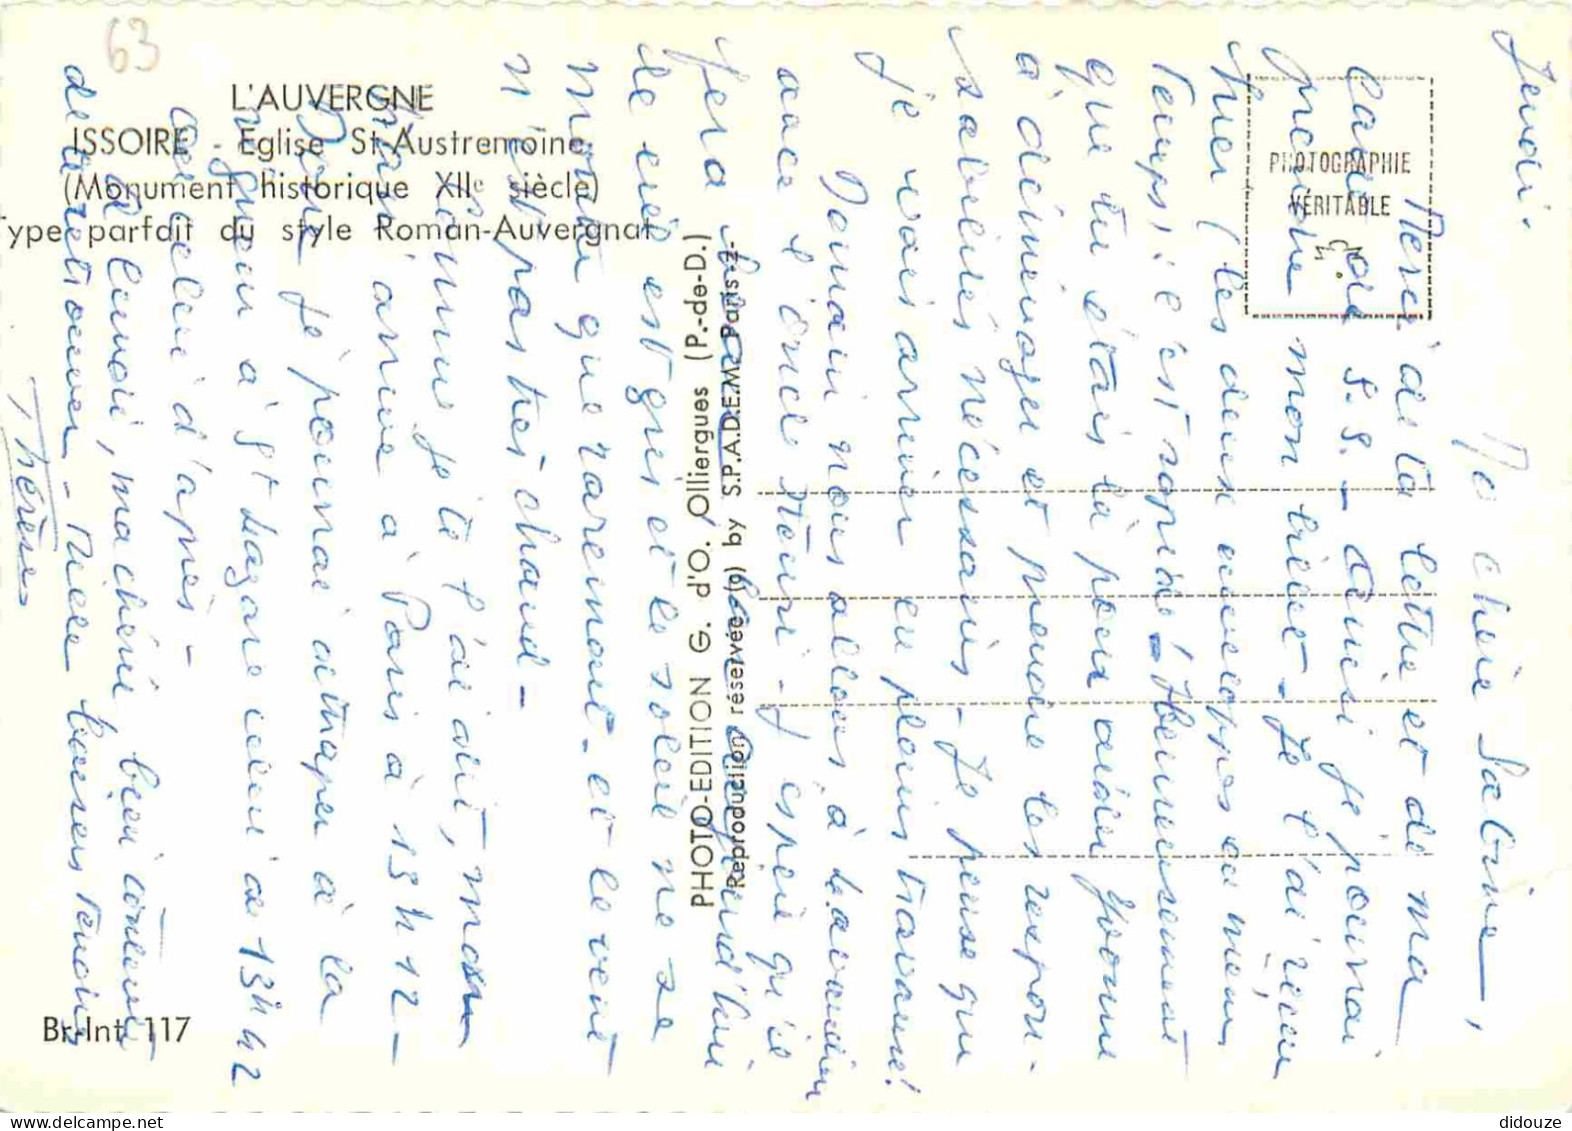 63
L'AUVERGNE
ISSOIRE - Eglise St-Austremoine
(Monument historique XIIe siècle)
Type parfait du style Roman-Auvergnat
PHOTOGRAPHIE
VÉRITABLE
PHOTO-EDITION G. d'O. Olliergues (P.-de-D.)
Reproduction réservée (g) by S.P.A.D.E.M. Paris-z-
Br-Int 117
Jeudi.
Ma chère
Merci de ta lettre et de ma
carte S.S. - ainsi je pourrai
prendre mon billet - Je l'ai reçu
hier (les deux enveloppes en même
temps) : c'est rapide ! Heureusement
que tu étais là pour aider Yvonne
à déménager et prendre les
nécessaires - Je pense que
je vais arriver en pleins travaux !
Demain nous allons à
avec l'oncle Henri - J'espère qu'il
fera beau aujourd'hui
le ciel est gris et le soleil ne se
montre que rarement - et le vent
n'est pas très chaud -
Comme je te l'ai dit, mon
train arrive à Paris à 13 h 12 -
Donc je pourrai attraper à la
rigueur à St Lazare celui de 13h 42
ou celui d'après -
A lundi, ma chérie bien contente
de te retrouver - Mille baisers tendres
Thérèse